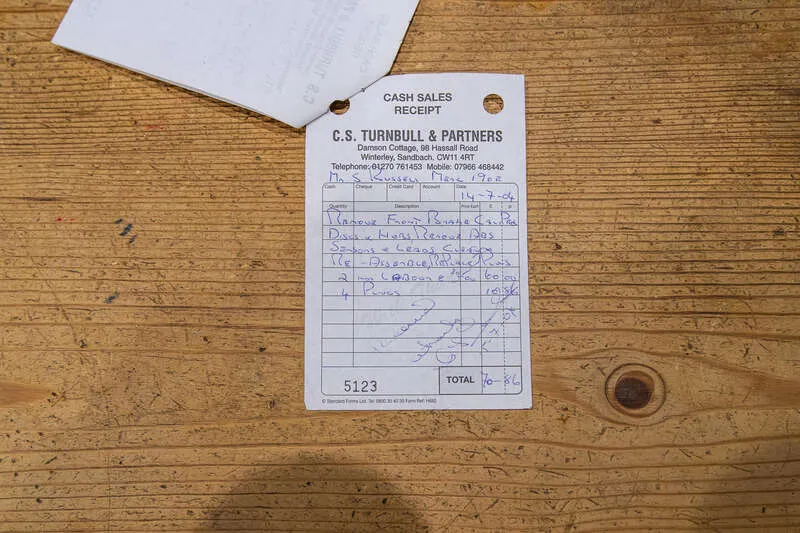 CASH SALES
RECEIPT
C.S. TURNBULL & PARTNERS
Damson Cottage, 98 Hassall Road
Winterley, Sandbach. CW11 4RT
Telephone: 01270 761453 Mobile: 07966 468442
Mr S Russell Merc 190E
Cash Cheque Credit Card Account Date
14-7-04
Quantity Description Price Each £ p
Remove Front Brake Caliper
Discs & Hubs Remove ABS
Sensors & Leads Clean &
Re-Assemble, Replace Plugs
2 Labour 60 00
4 Plugs 10 86
5123 TOTAL 70-86
© Standard Forms Ltd. Tel: 0800 30 40 30 Form Ref: H682
C.S. TURNBULL &